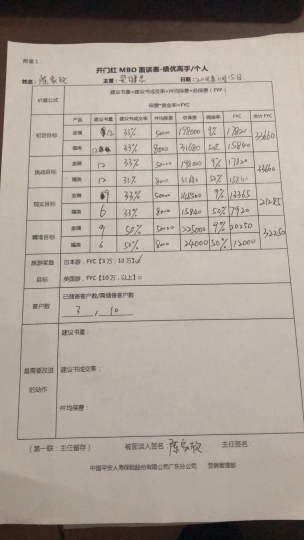 附表1
开门红 MBO 面谈表-绩优高手/个人
姓名: 陈家欣 主管: 日期: 2018年11月15日
价值公式 建议书量×建议书成交率×件均保费=总保费(FYP)
保费*佣金率=FYC
产品 建议书量 建议书成交率 件均保费 总保费 佣金率 FYC 合计 FYC
初定目标 12 33% 50000 198000 9% 17820 33660
12 33% 8000 31680 50% 15840
挑战目标 12 33% 50000 198000 9% 17820 33660
12 33% 8000 31680 50% 15840
锁定目标 9 33% 50000 148500 9% 13365 21285
6 33% 8000 15840 50% 7920
精准目标 9 50% 50000 225000 9% 20250 32250
6 50% 8000 24000 50% 12000
旅游奖励 日本游,FYC【3万,10万】√
目标 英国游,FYC【10万,以上】□
客户数 已储备客户数/需储备客户数
3 , 10
最需要改进的动作 建议书量:
建议书成交率:
件均保费:
(第一联:主任留存) 被面谈人签名 陈家欣 主任签名
中国平安人寿保险股份有限公司广东分公司 营销管理部